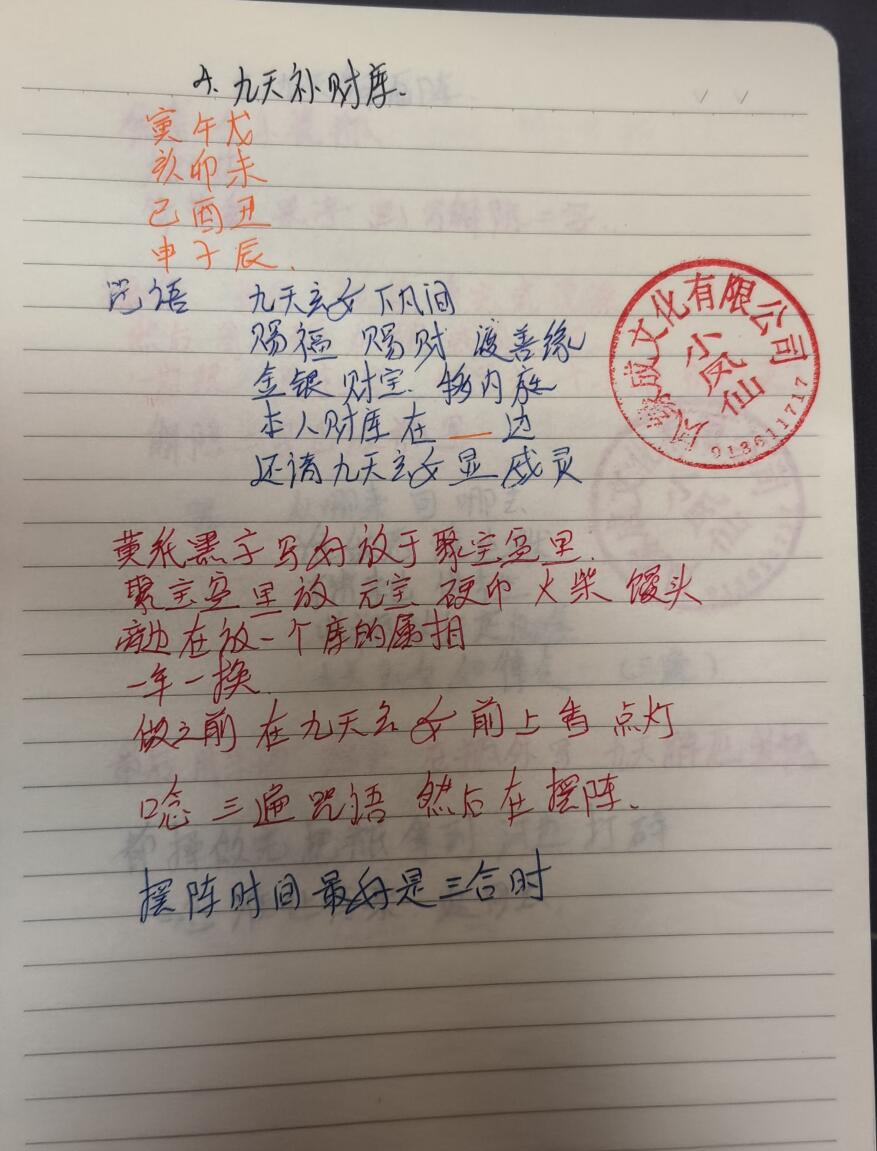 4. 九天补财库.
寅午戌
亥卯未
己酉丑
申子辰.
咒语 九天玄女下凡间
赐福 赐财 渡善缘
金银财宝 移内庭
本人财库在 __ 边
还请九天玄女显威灵
文化有限公司
小凤仙
913611717
黄纸黑字写好放于聚宝盆里.
聚宝盆里放 元宝 硬币 火柴 馒头
旁边在放一个库的属相
一年一换.
做之前 在九天玄女前上香 点灯
唸 三遍咒语 然后在摆阵.
摆阵时间最好是三合时